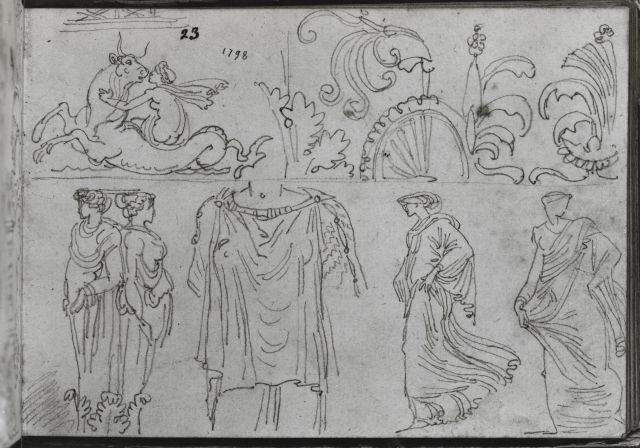 23
1798